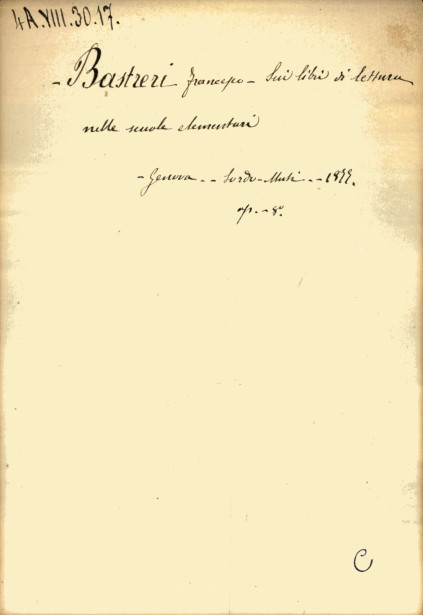 4A.VIII.30.17.
- Bastreri Francesco - Sui libri di lettura
nelle scuole elementari
- Genova - - Sordo-Muti - - 1877.
op. - 8°.
C